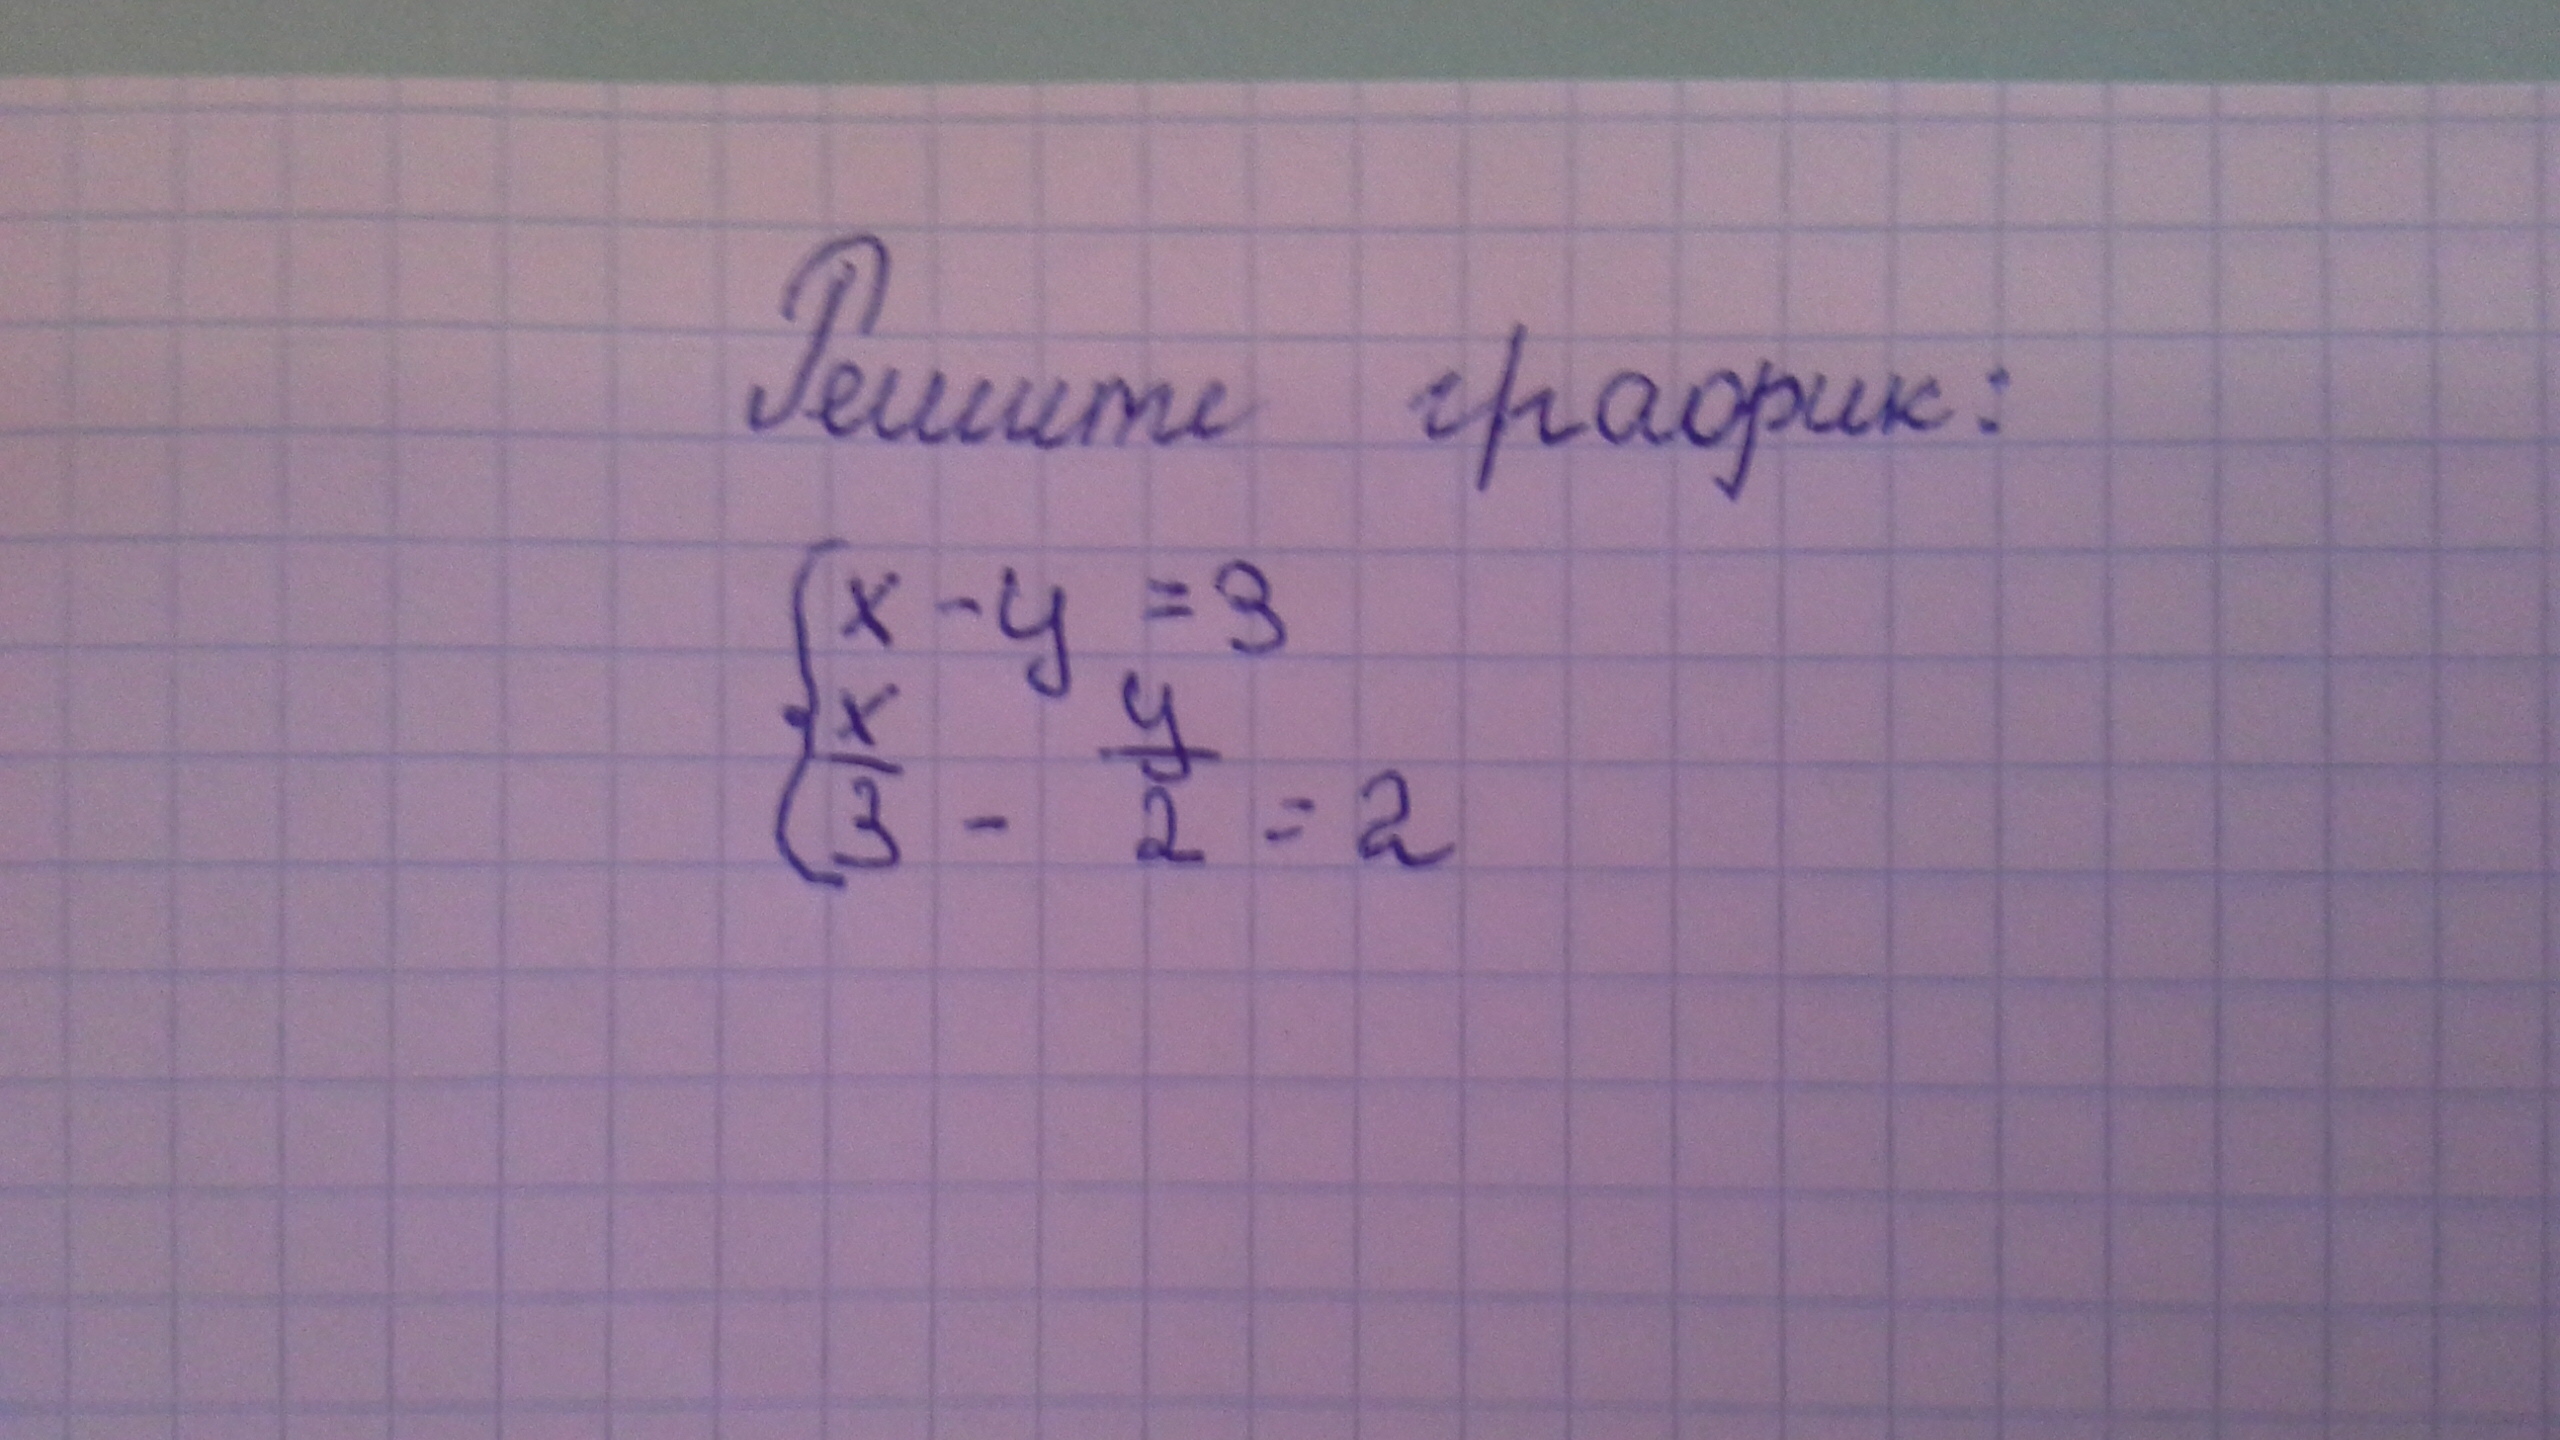 Решите график:
x - y = 3
x/3 - y/2 = 2